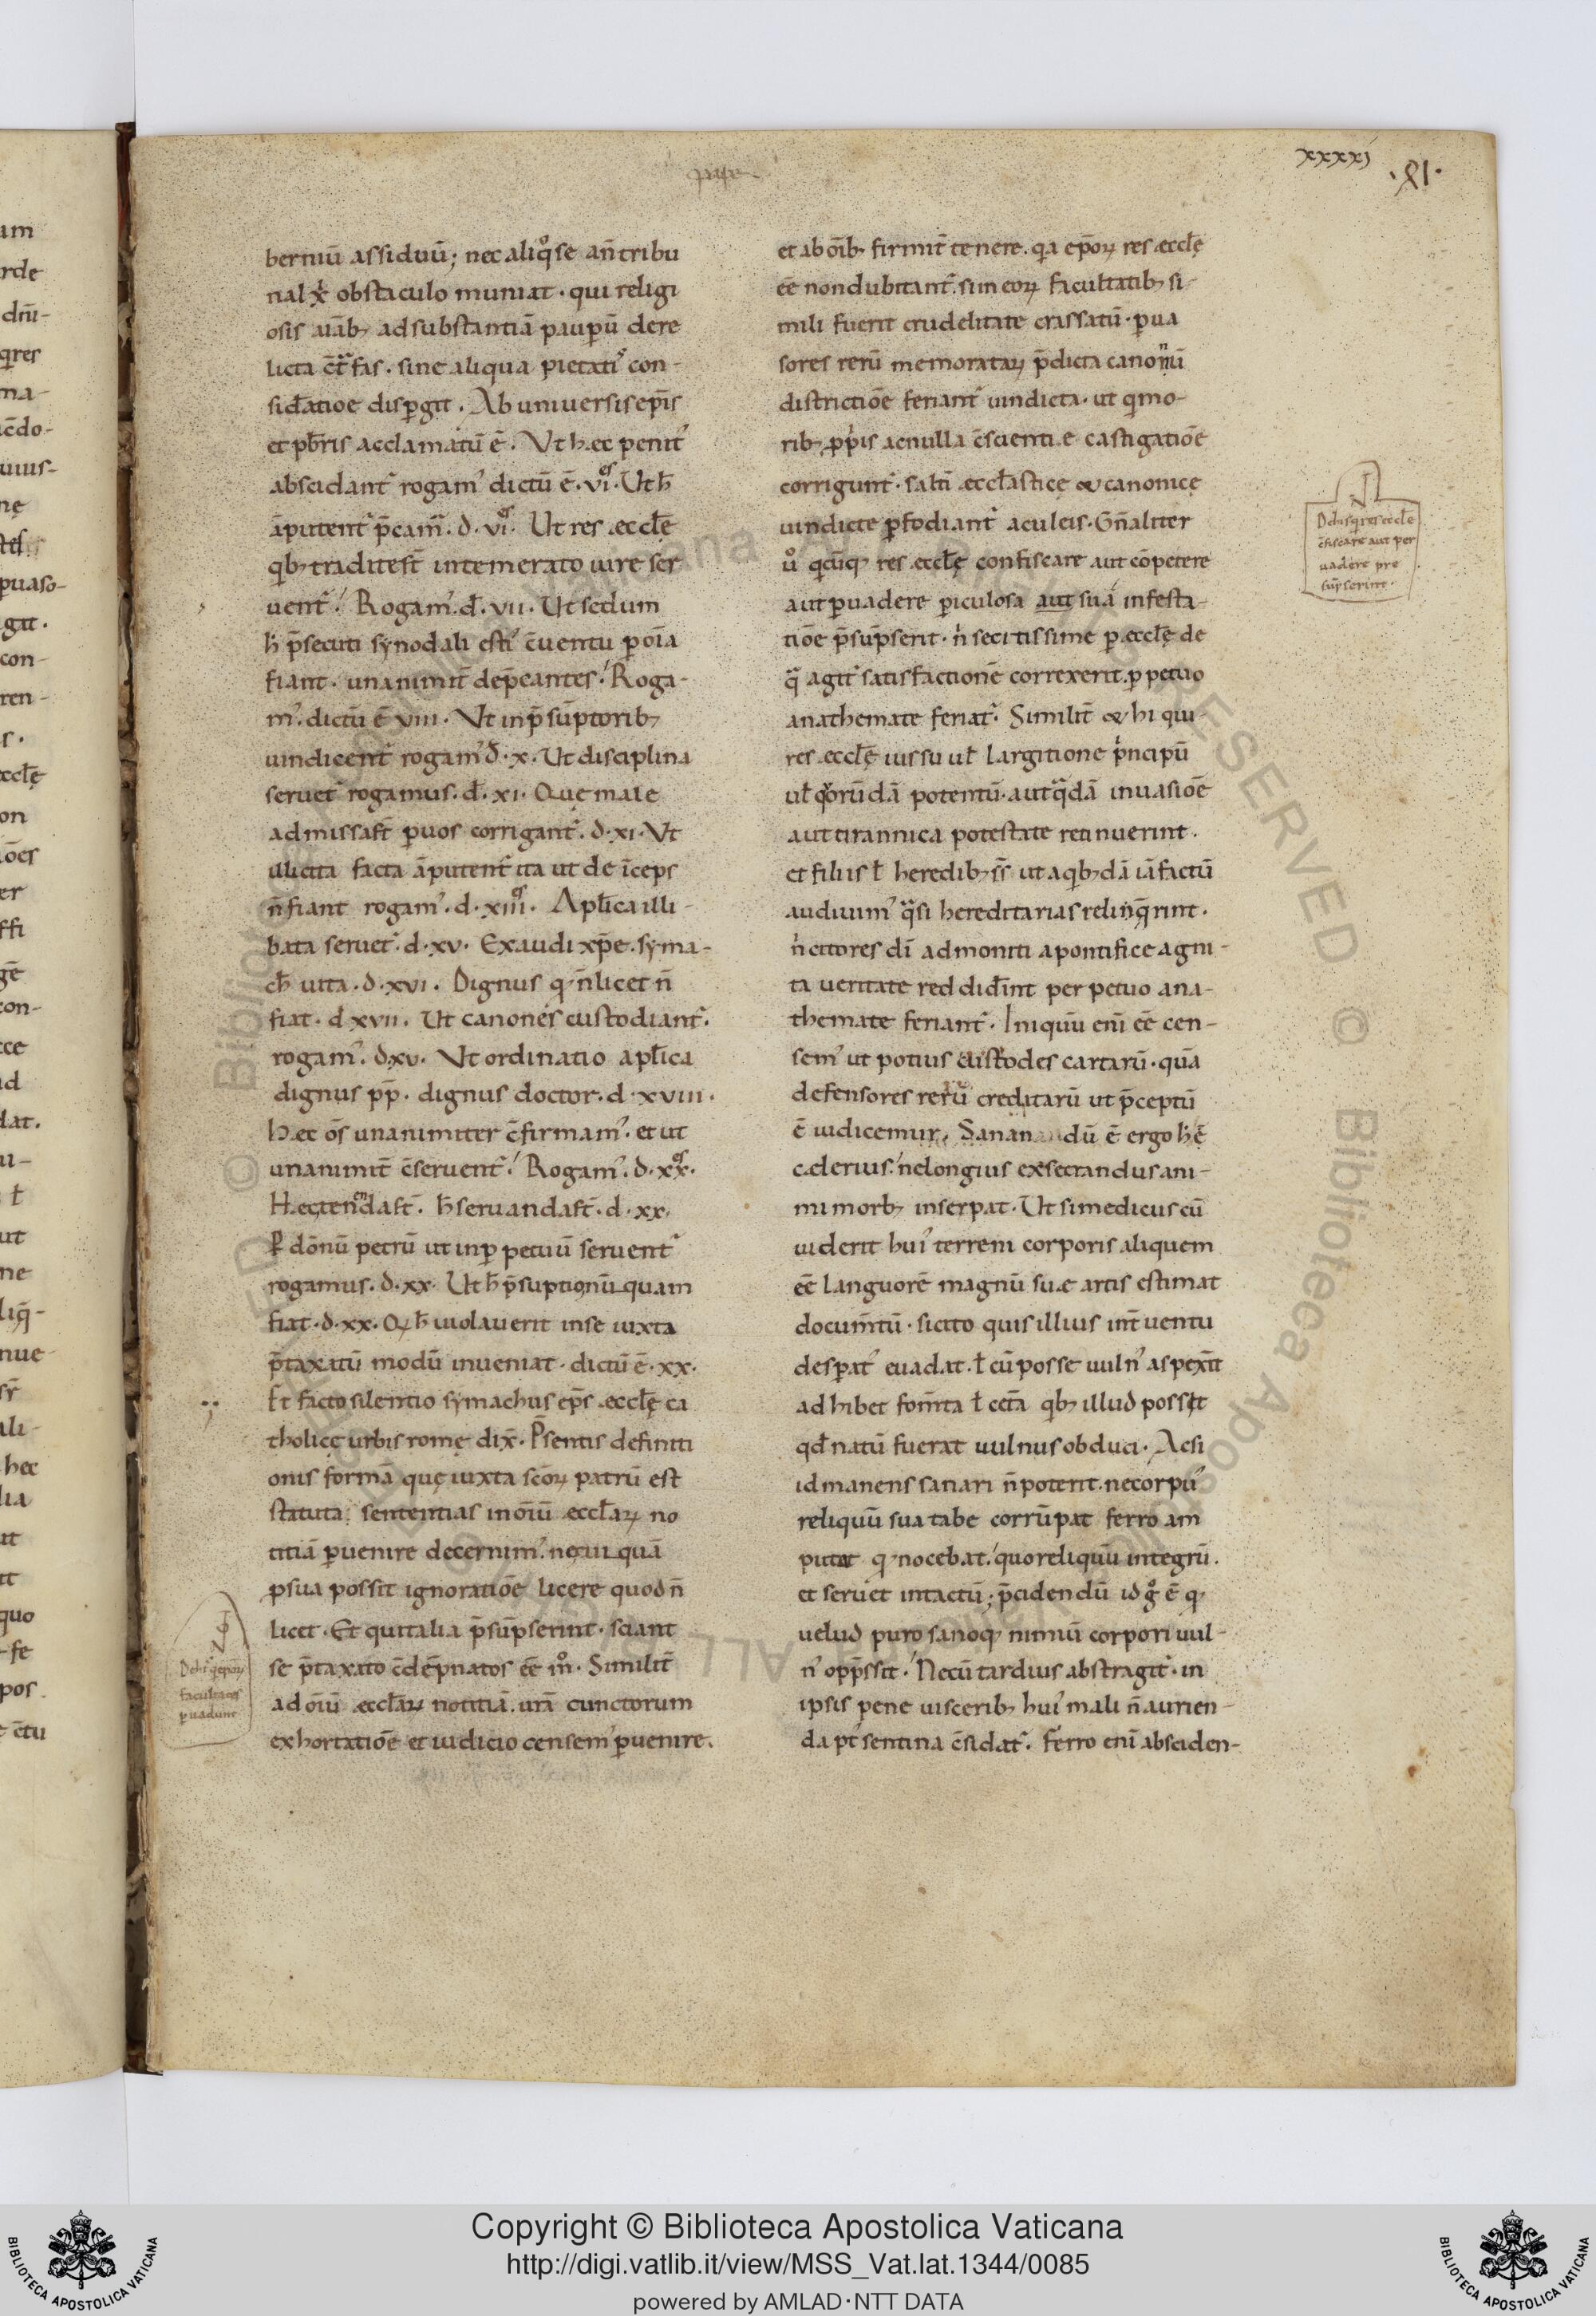 xxxxi
·xli·
berniū assiduū; nec aliqͦ se an̄ tribu
nal xͥ obstaculo muniat · qui religi
osis aīab; ad substantiā paupū dere
licta c̄tͣ fas · sine aliqua pietatiˢ con-
sid̄atioe dispgit · Ab universis ep̄is
et pb̄ris acclamatū ē · Vt hęc penitˀ
abscidantͬ rogamˀ dictū ē · vi · Ut h̄
āputentͬ p̄camͬ · d · vi · Ut res ęccłę
qb; tradite st̄ intemerato iure ser
uentͬ · Rogamˀ · d̄ · vii · Ut sedum
h̄ p̄secuti synodali c̄uentu p oīa
fiant · unanimit̄ dep̄cantes · Roga-
mˀ · dictū ē viii · Vt in p̄sūptorib;
uindicentͬ rogamˀ d̄ · x · Ut disciplina
seruetͬ rogamus · d̄ · xi · Quę male
admissa st̄ p uos corrigantͬ · d · xi · Vt
illicita facta āputentͬ ita ut deīceps
n̄ fiant rogamˀ · d · xiii · Apłica illi-
bata seruetͬ · d · xv · Exaudi xp̄e · syma-
ch̄ uita · d · xvi · Dignus q n̄ licet n̄
fiat · d xvii · Ut canones custodiantͬ ·
rogamˀ · d xv · Vt ordinatio apłica
dignus pp̄ · dignus doctor · d · xviii ·
Hęc om̄s unanimiter c̄firmamˀ · et ut
unanimit̄ c̄seruentͬ · Rogamˀ · d · xx ·
Hęc tenenda st̄ · h̄ seruanda st̄ · d · xx ·
P dōnū petrū ut in ppetuū seruentͬ
rogamus · d · xx · Ut h̄ p̄suptio nūquam
fiat · d · xx · Q h̄ uiolauerit in se iuxta
p̄taxatū modū inueniat · dictū ē · xx ·
Et facto silentio symachus ep̄s ęccłę ca
tholicę urbis romę dix̄ · P̄sentis definiti
onis formā quę iuxta scōꝝ patrū est
statuta · sententias in oīū ęccłaꝝ no
titiā puenire decernimˀ · ne cuiquā
p sua possit ignoratiōe licere quod n̄
licet · Et qui talia p̄sūpserint · sciant
se p̄taxato c̄dēpnatos ēe mͦ · Similit̄
ad oīū ęccłaꝝ notitiā · urā cunctorum
exhortatiōe et iudicio censemˀ puenire ·
et ab oīb; firmit̄ tenere · qa ep̄oꝝ res ęccłę
ēe non dubitantͬ · si in eoꝝ facultatib; si-
mili fuerit crudelitate crassatū · pua
sores rerū memorataꝝ p̄dicta canonū
districtiōe feriantͬ uindicta · ut q mo-
rib; pp̄is ac nulla c̄scientię castigatiōe
corriguntͬ · saltī ęccłasticę & canonicę
uindictę pfodiantͬ aculeis · Gn̄aliter
uͦ qicūq; res ęccłę confiscare aut cōpetere
aut puadere piculosa aut sua infesta-
tiōe p̄sūpserit · nͥ se citissime p ęccłę de
qͣ agitͬ satisfactionē correxerit · ppetuo
anathemate feriatͬ · Similit̄ & hi qui
res ęccłę iussu uł largitione pͥncipū
uł qͦrūdā potentū · aut qͣdā inuasiōe
aut tirannica potestate retinuerint ·
et filiis ł heredib; s̄s̄ ut a qb;dā iā factū
audiuimˀ qͣsi hereditarias relinqrint ·
nͥ citi res dī admoniti a pontifice agni-
ta ueritate reddid̄int perpetuo ana-
themate feriantͬ · Iniquū enī ēe cen-
semˀ ut potius custodes cartarū · quā
defensores rerū creditarū ut p̄ceptū
ē iudicemur · Sanandū ē ergo h̄
cęlerius · ne longius exsecrandus ani-
mi morb; inserpat · Ut si medicus cū
uiderit huiˀ terreni corporis aliquem
ēe languorē magnū suę artis estimat
documtū · si cito quis illius int̄uentu
despatˀ euadat · ł cū posse uulnˀ aspex̄it
adhibet fomta ł cetā qb; illud posset
qd̄ natū fuerat uulnus obduci · Ac si
id manens sanari n̄ poterit · ne corpˀ
reliquū sua tabe corrūpat ferro am
putat q nocebat · quo reliquū integrū ·
et seruet intactū; p̄cidendū id gͦ ē q
uelud puro sanoq; nimiū corpori uul-
nˀ opp̄ssit · Ne cū tardius abstragitͬ · in
ipsis pene uisceríb; huiˀ mali n̄ aurien-
da ptˀ sentina c̄sidatͬ · ferro enī absciden-
De his q res eccłe
c̄fiscare aut per
uadere pre
sūpserint ·
De his q epōꝝ
facultates
puadunt
Copyright © Biblioteca Apostolica Vaticana
http://digi.vatlib.it/view/MSS_Vat.lat.1344/0085
powered by AMLAD·NTT DATA
BIBLIOTECA APOSTOLICA VATICANA
BIBLIOTECA APOSTOLICA VATICANA